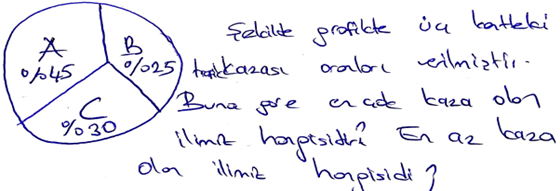 A
%45
B
%25
C
%30
Şekilde grafikte üç hatteki
trafik kazası oranları verilmiştir.
Buna göre en çok kaza olan
ilimiz hangisidir? En az kaza
olan ilimiz hangisidi?